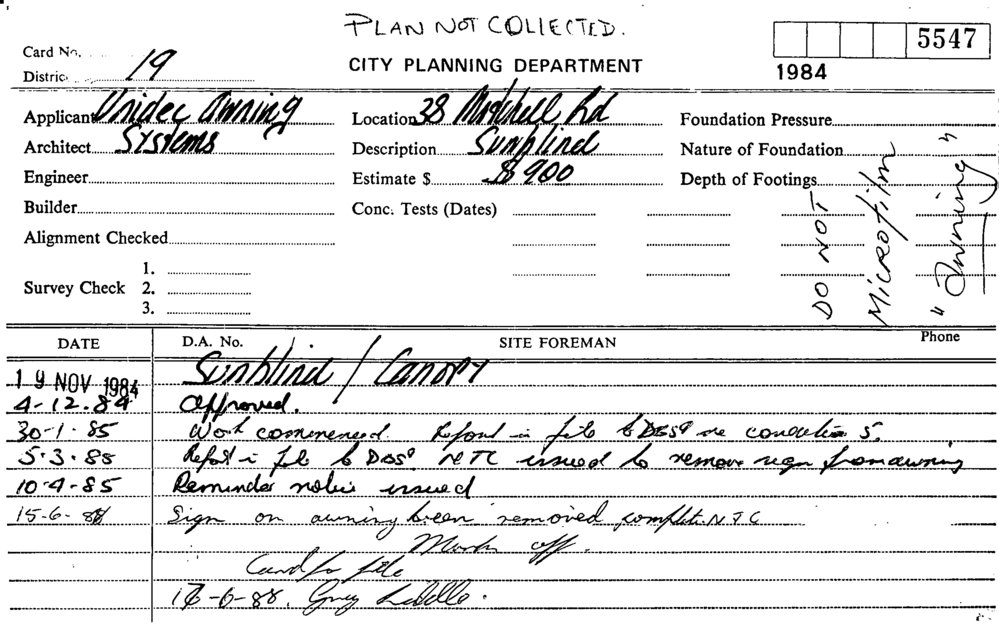 PLAN NOT COLLECTED.
5547
Card No.
District 19
CITY PLANNING DEPARTMENT
1984
Applicant Unidec Awning
Location 38 Mitchell Rd
Foundation Pressure
Architect Systems
Description Sunblind
Nature of Foundation
Engineer
Estimate $ $900
Depth of Footings
Builder
Conc. Tests (Dates)
Alignment Checked
DO NOT
MICROFILM
"Awning"
1.
Survey Check 2.
3.
DATE D.A. No. SITE FOREMAN Phone
19 NOV 1984 Sunblind / Canopy
4-12.84 Approved.
30-1-85 Work commenced. Report in file to condition 5.
Report in file to NTC issued to remove sign from awning
10-4-85 Reminder notice issued
Sign on awning been removed complete. N.T.C
Mark off.
Card for file